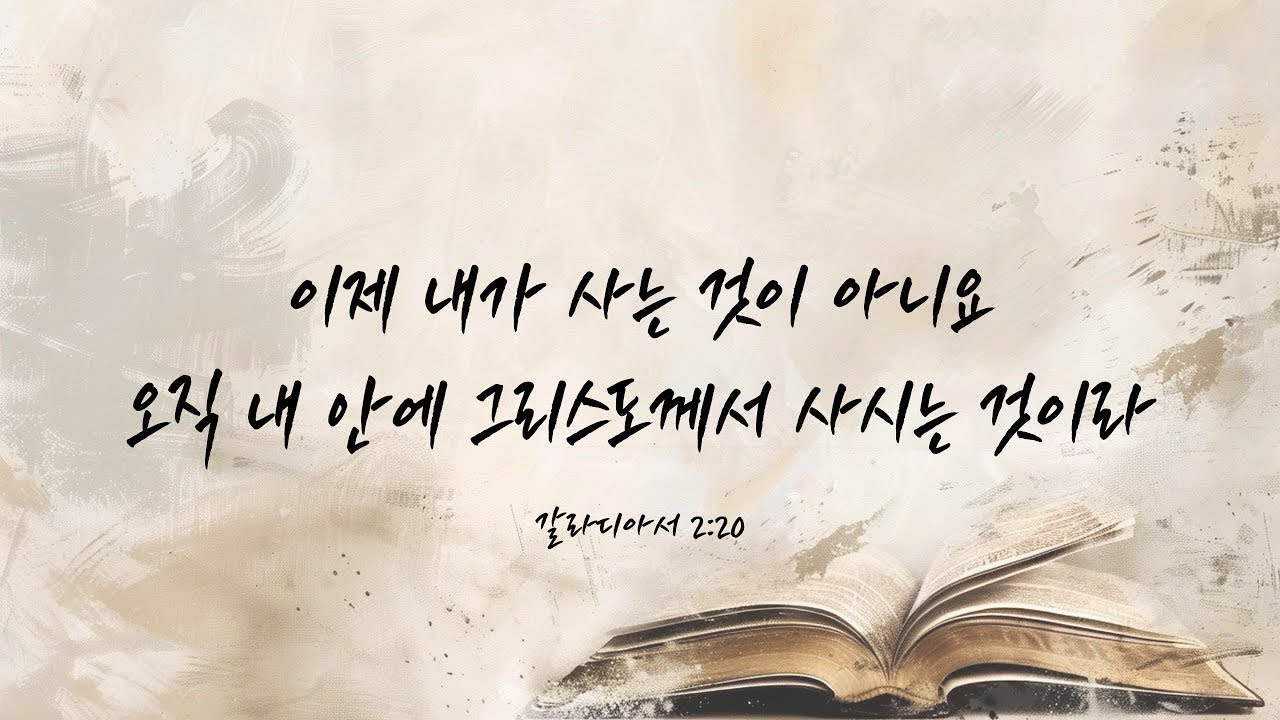 이제 내가 사는 것이 아니요
오직 내 안에 그리스도께서 사시는 것이라
갈라디아서 2:20